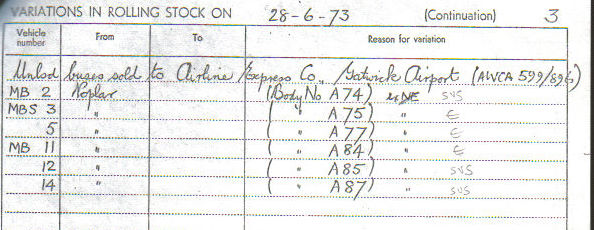 VARIATIONS IN ROLLING STOCK ON 28-6-73 (Continuation) 3
Vehicle number From To Reason for variation
Unlsd buses sold to Airline Express Co, Gatwick Airport (AWCA 599/896)
MB 2 Poplar (Body No A74) u/DE SVS
MBS 3 " ( " A75) " E
5 " ( " A77) " E
MB 11 " ( " A84) " E
12 " ( " A85) " SVS
14 " ( " A87) " SVS